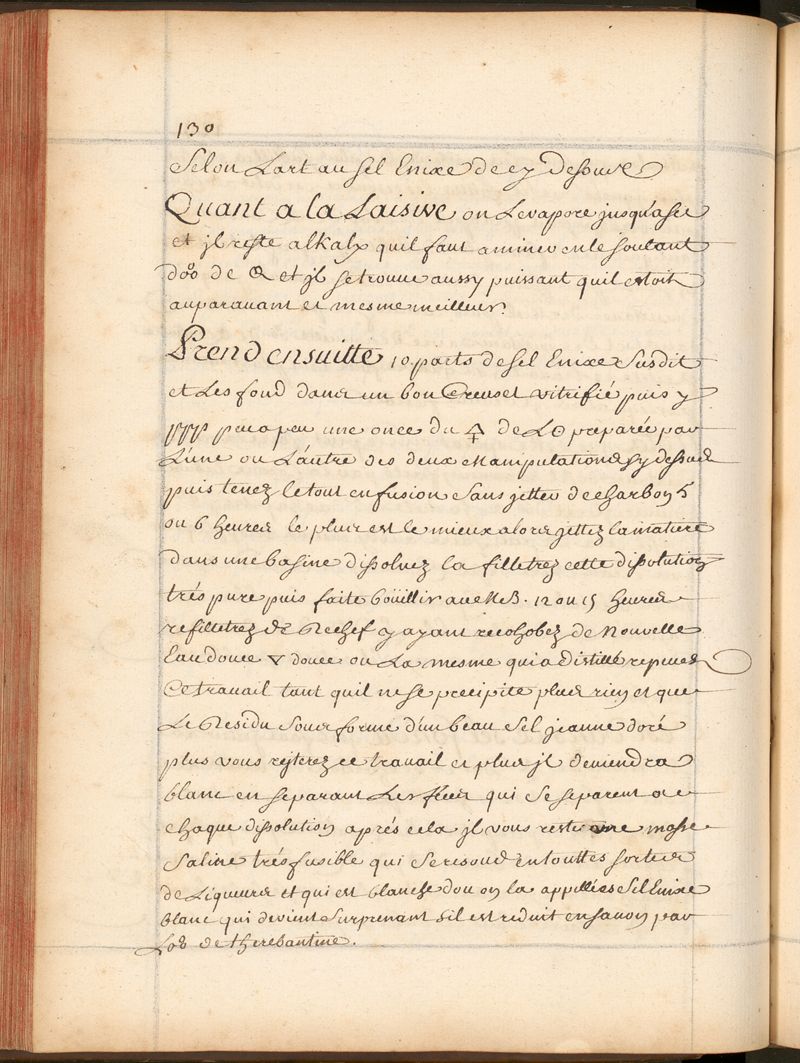 130
Selon Lart au sel Enixe de cy Desoure
Quant a la Laisive on Levapore jusqu'a sec
et jl reste alkaly quil faut aminer en le soulant
de et jl se trouve aussy puissant quil estoit
auparavant et mesme meilleur.
Prend ensuitte 10 parts de sel Enixe Susdit
et Les fond dans un bon Creuset vitrifié puis y
peu a peu une once du 🜍 de L☉ preparée par
L'une ou L'autre des deux Manipulations cy dessus
puis tenez le tout en fusion sans jetter de charbon 5
ou 6 heures le plus est le mieux alors jettez la matiere
dans une basine dissoluez la filletrez cette dissolution
trés pure puis faite boüillir au MB. 12 ou 15 heures
refilletrez de Rechef y ayant recohobez de Nouvelle
Eau douce ▽ douce ou La mesme qui a distillé repeuez
Ce travail tant quil ne se precipite plus rien et que
Le Residu sous forme d'un beau Sel jeanne doré
plus vous rejterez ce travail et plus jl deuiendra
blanc en separant Les feces qui se separent a
chaque dissolution aprés cela jl vous reste une masse
Saline trés fusible qui se resoud en touttes sortes
de Liqueurs et qui est blanche dou on la appellées Sel Enixe
blanc qui devient surprenant sil est reduit en savon par
de therebantine.